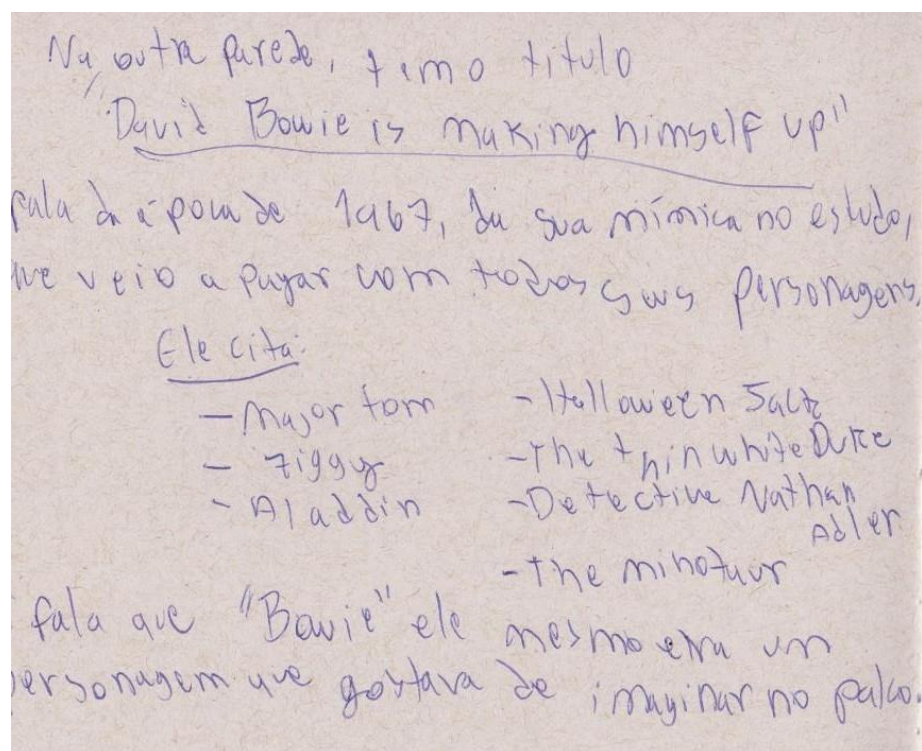 Na outra parede, tem o titulo
"David Bowie is making himself up"
fala da época de 1967, da sua mímica no estudo,
que veio a pagar com todos seus personagens.
Ele cita:
- Major tom
- Ziggy
- Aladdin
- Halloween Jack
- The thin white Duke
- Detective Nathan
Adler
- The minotaur
fala que "Bowie" ele mesmo era um
personagem que gostava de imaginar no palco.